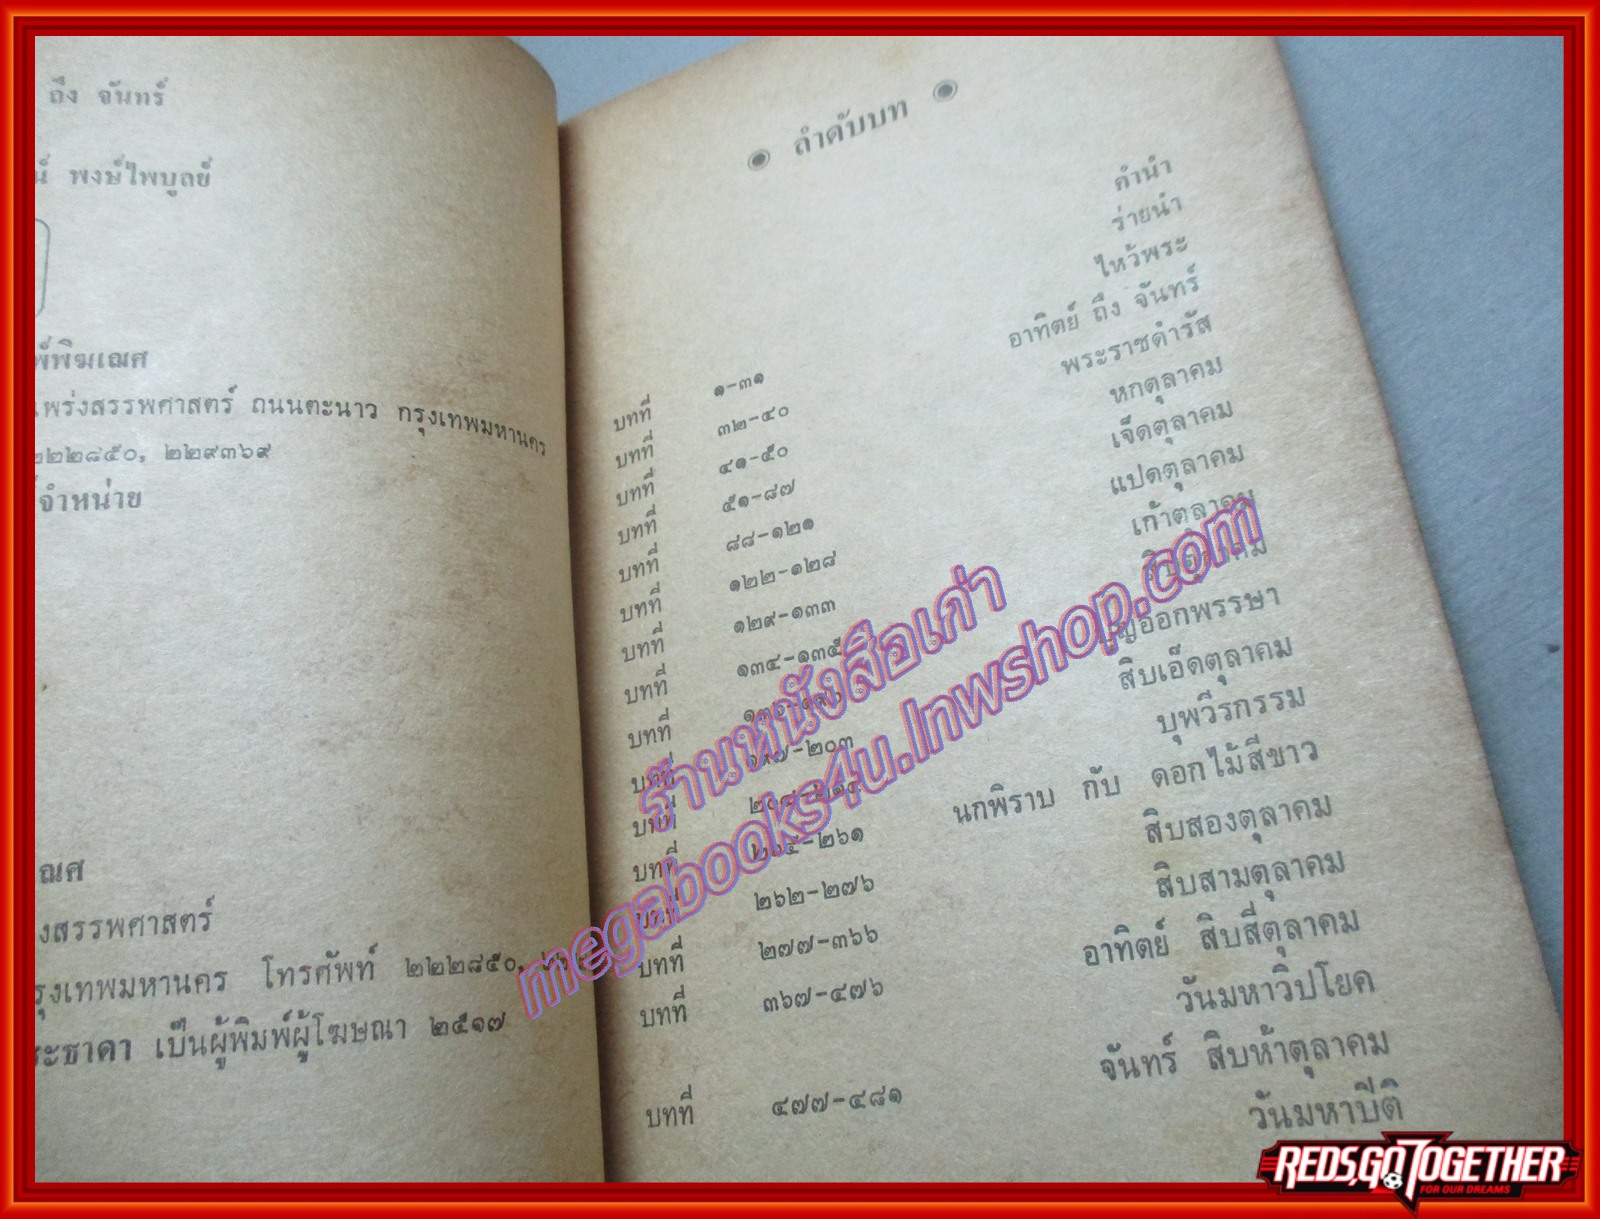 ถึง จันทร์
พงษ์ไพบูลย์
พิฆเณศ
แพร่งสรรพศาสตร์ ถนนตะนาว กรุงเทพมหานคร
๒๒๒๘๕๐, ๒๒๙๓๖๙
จำหน่าย
สรรพศาสตร์
กรุงเทพมหานคร โทรศัพท์ ๒๒๒๘๕๐,
เป็นผู้พิมพ์ผู้โฆษณา ๒๕๑๗
ลำดับบท
คำนำ
ร่ายนำ
ไหว้พระ
บทที่ ๑-๓๑ อาทิตย์ ถึง จันทร์
บทที่ ๓๒-๔๐ พระราชดำรัส
บทที่ ๔๑-๕๐ หกตุลาคม
บทที่ ๕๑-๘๗ เจ็ดตุลาคม
บทที่ ๘๘-๑๒๑ แปดตุลาคม
บทที่ ๑๒๒-๑๒๘ เก้าตุลาคม
บทที่ ๑๒๙-๑๓๓ สิบตุลาคม
บทที่ ๑๓๔-๑๓๕ ออกพรรษา
บทที่ สิบเอ็ดตุลาคม
บทที่ ๑๙๗-๒๐๓ บุพวีรกรรม
บทที่ นกพิราบ กับ ดอกไม้สีขาว
บทที่ ๒๖๑ สิบสองตุลาคม
บทที่ ๒๖๒-๒๗๖ สิบสามตุลาคม
บทที่ ๒๗๗-๓๖๖ อาทิตย์ สิบสี่ตุลาคม
บทที่ ๓๖๗-๔๗๖ วันมหาวิปโยค
จันทร์ สิบห้าตุลาคม
บทที่ ๔๗๗-๔๘๑ วันมหาปีติ
ร้านหนังสือเก่า
megabooks4u.lnwshop.com
REDS,GO TOGETHER
FOR OUR DREAMS